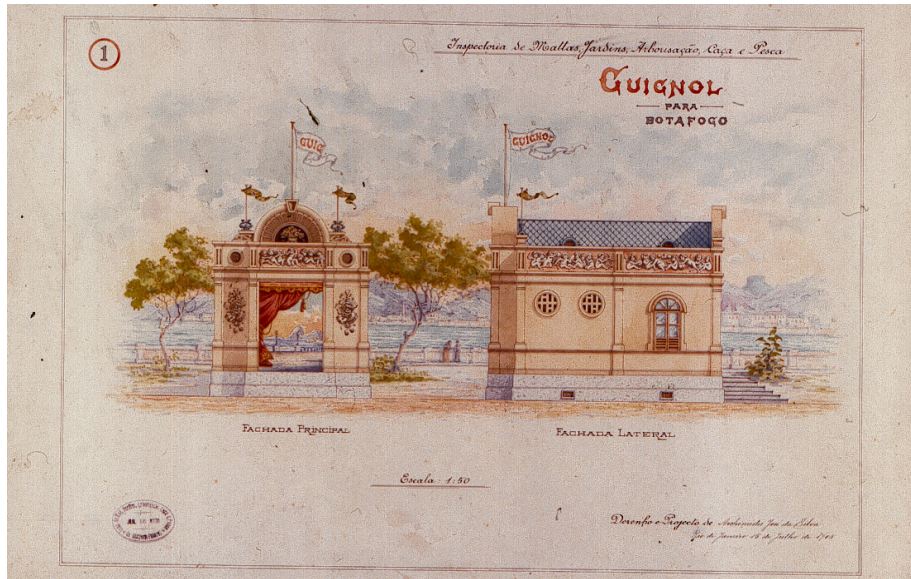 1
Inspectoria de Mattas, Jardins, Arborisação, Caça e Pesca
GUIGNOL
PARA
BOTAFOGO
GUIG
GUIGNOL
FACHADA PRINCIPAL
FACHADA LATERAL
Escala: 1:50
Desenho e Projecto de José da Silva
Rio de Janeiro de Julho de